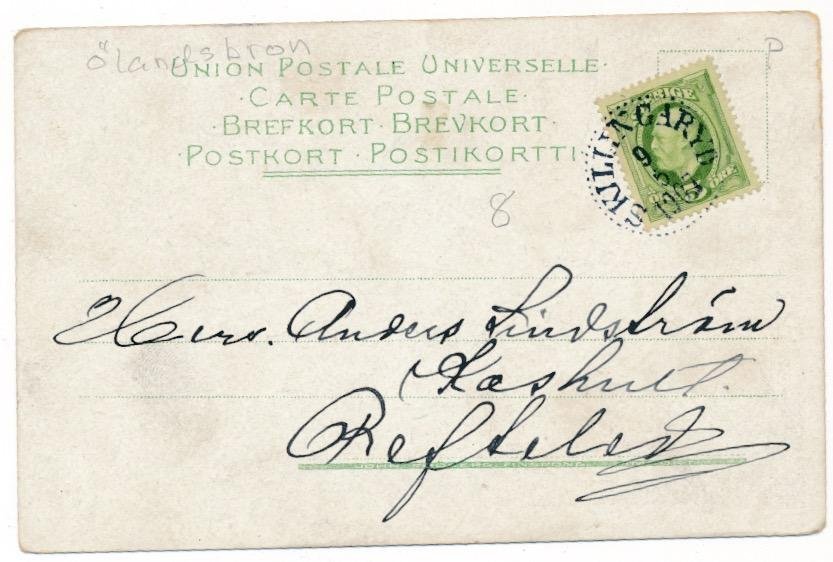 Ölandsbron
UNION POSTALE UNIVERSELLE
·CARTE POSTALE·
·BREFKORT·BREVKORT·
·POSTKORT·POSTIKORTTI·
P
SKILLINGARYD
1904
8
Herr. Anders Lindström
Kashult.
Reftele